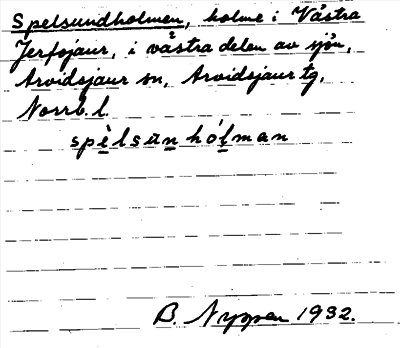 Spelsundholmen, holme i Västra
Jerfojaur, i västra delen av sjön,
Arvidsjaur sn, Arvidsjaur tg,
Norrb. l.
spèlsun hólman
B. Nyppen 1932.